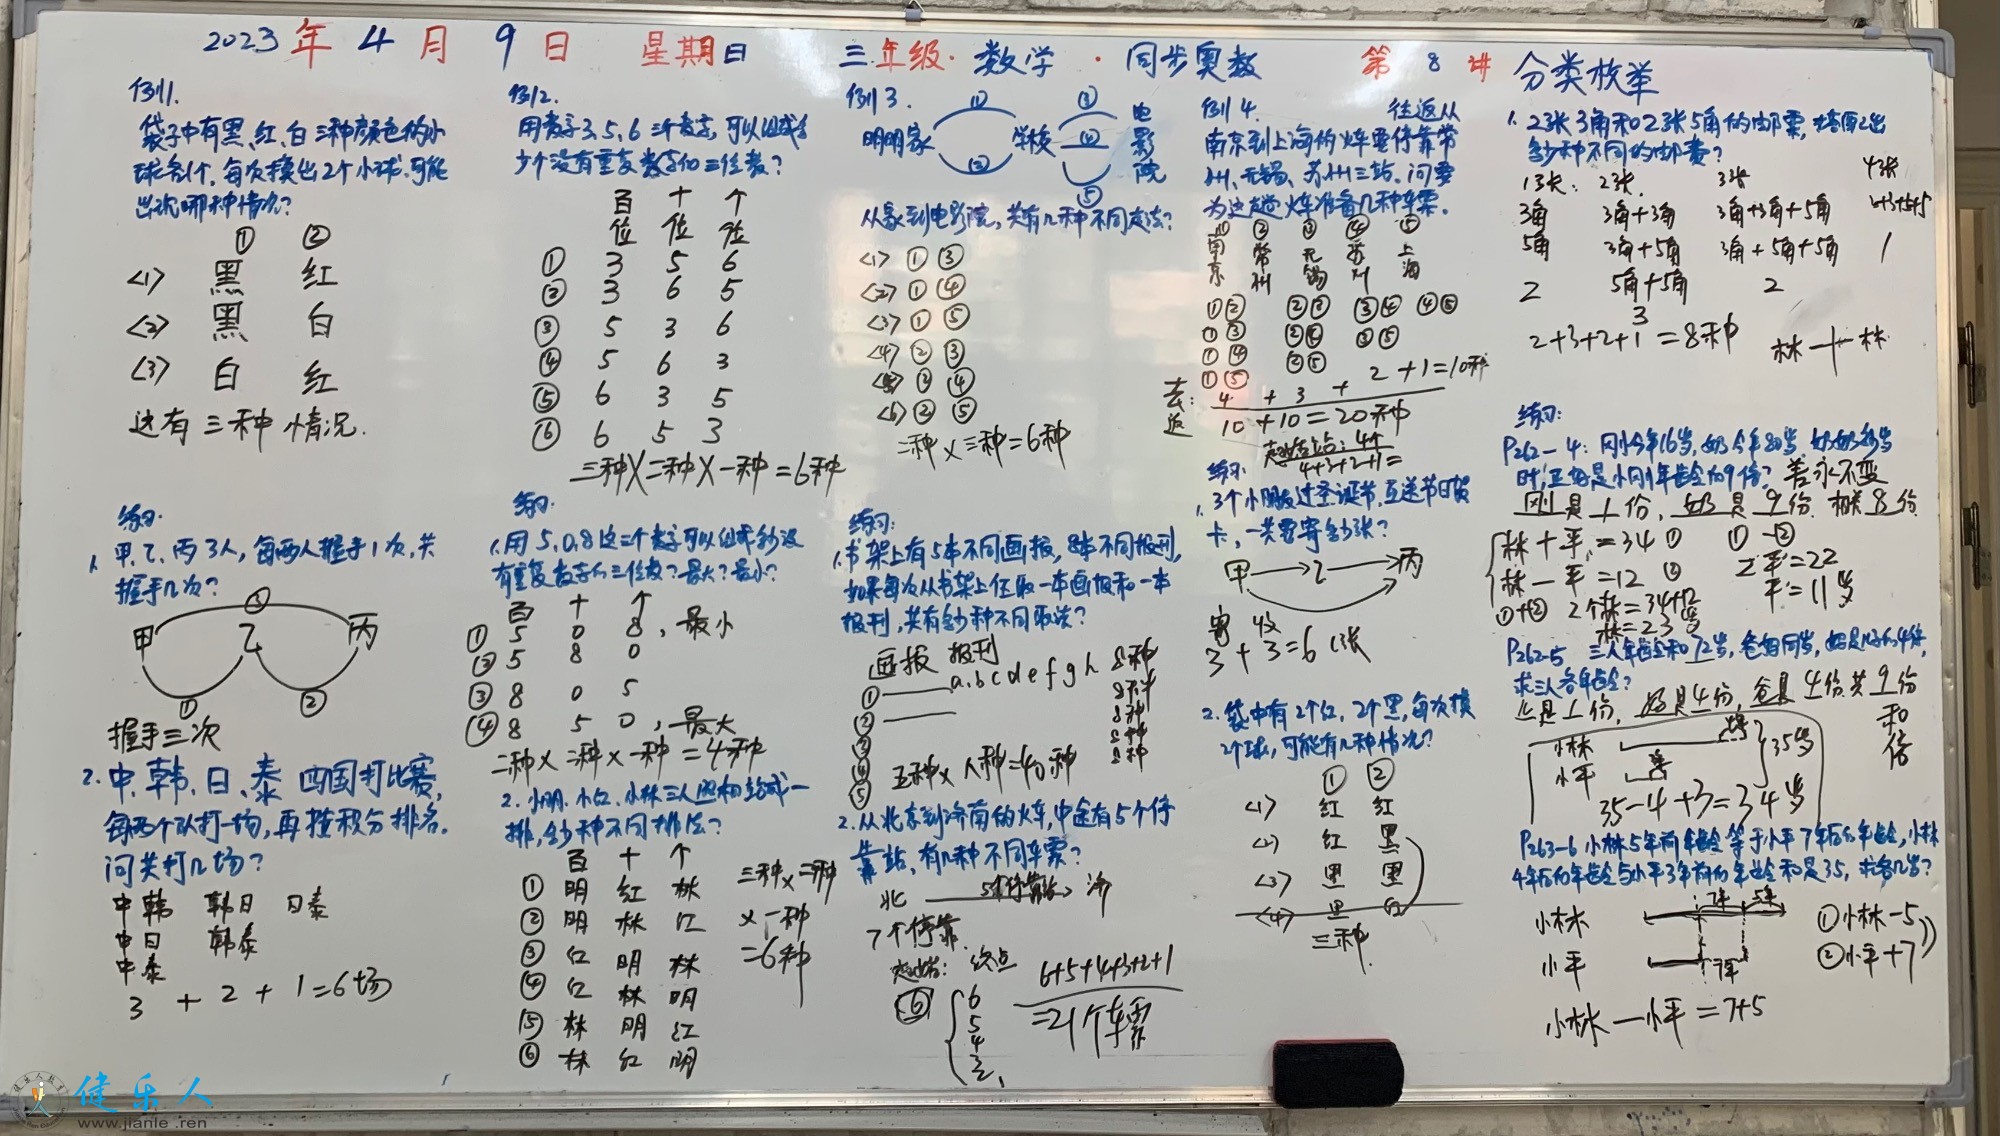 2023年4月9日 星期日 三年级·数学·同步奥数 第8讲 分类枚举
例1.
袋子中有黑、红、白三种颜色的小
球各1个,每次摸出2个小球,可能
出现哪种情况?
① ②
<1> 黑 红
<2> 黑 白
<3> 白 红
这有三种情况.
练习.
1. 甲、乙、丙3人,每两人握手1次,共
握手几次?
③
甲 乙 丙
① ②
握手三次
2. 中、韩、日、泰 四国打比赛,
每两个队打一场,再按积分排名.
问共打几场?
中韩 韩日 日泰
中日 韩泰
中泰
3 + 2 + 1=6场
例2.
用数字3、5、6三个数字,可以组成多
少个没有重复数字的三位数?
百 十 个
位 位 位
① 3 5 6
② 3 6 5
③ 5 3 6
④ 5 6 3
⑤ 6 3 5
⑥ 6 5 3
三种×二种×一种=6种
练习.
1.用5、0、8这三个数字可以组成多少没
有重复数字的三位数?最大?最小?
百 十 个
① 5 0 8,最小
② 5 8 0
③ 8 0 5
④ 8 5 0,最大
二种×二种×一种=4种
2. 小明、小红、小林三人照相站成一
排,多少种不同排法?
百 十 个
① 明 红 林 三种×二种
② 明 林 红 ×一种
③ 红 明 林 =6种
④ 红 林 明
⑤ 林 明 红
⑥ 林 红 明
例3.
① ③ 电
明明家 学校 ④ 影
② ⑤ 院
从家到电影院,共有几种不同走法?
<1> ① ③
<2> ① ④
<3> ① ⑤
<4> ② ③
② ④
<6> ② ⑤
二种×三种=6种
练习:
1.书架上有5本不同画报,8本不同报刊,
如果每次从书架上任取一本画报和一本
报刊,共有多少种不同取法?
画报 报刊
① a.b c d e f g h 8种
② 8种
③ 8种
④ 8种
⑤ 8种
五种×八种=40种
2.从北京到济南的火车,中途有5个停
靠站,有几种不同车票?
北 5个停靠站 济
7个停靠
起始站: 终点
⑥ 6 5 4 3
6+5+4+3+2+1
=21个车票
例4. 往返从
南京到上海的火车要停靠常
州、无锡、苏州三站.问要
为这趟火车准备几种车票.
① ② ③ ④ ⑤
南京 常州 无锡 苏州 上海
①② ②③ ③④ ④⑤
①③ ②④ ③⑤
①④ ②⑤
①⑤
去: 4 + 3 + 2+1=10种
返 10+10=20种
起始站:4个
4+3+2+1=
练习.
1. 3个小朋友过圣诞节,互送节日贺
卡,一共要寄多少张?
甲 乙 丙
寄 收
3 + 3=6(张
2. 袋中有2个红,2个黑,每次摸
2个球,可能有几种情况?
① ②
<1> 红 红
<2> 红 黑
<3> 黑 黑
<4> 黑 红
三种.
1. 2张3角和2张5角的邮票,
多少种不同的邮费?
1张: 2张. 3张 4张
3角 3角+3角 3角+3角+5角 3+3+5+5
5角 3角+5角 3角+5角+5角 1
2 5角+5角 2
3
2+3+2+1=8种
练习:
P262-4: 刚今年16岁,奶今年80岁,奶奶多少岁
时,正好是小刚年龄的9倍? 差永不变
刚是1份,奶是9份.相差8份
林+平=34① ①-②
林-平=12② 2平=22
①+② 2个林=34+12 平=11岁
林=23岁
P262-5 三人年龄和72岁,爸妈同岁,妈是儿子的4倍,
求三人各年龄?
儿是1份,妈是4份,爸是4份.共9份
和倍
小林
小平 35岁
35-4+3=34岁
P263-6 小林5年前年龄等于小平7年后的年龄,小林
4年后的年龄与小平3年前的年龄和是35,求各几岁?
小林 7年 5年 ①小林-5
小平 7年 ②小平+7
小林-小平=7+5
健乐人
www.jianle.ren